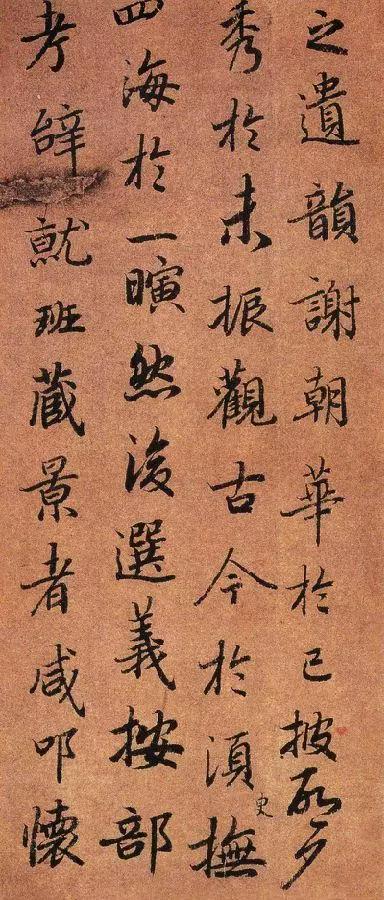 之遺韻謝朝華於已披啟夕
秀於未振觀古今於須臾撫
四海於一瞚然後選義按部
考辭就班藏景者咸叩懷